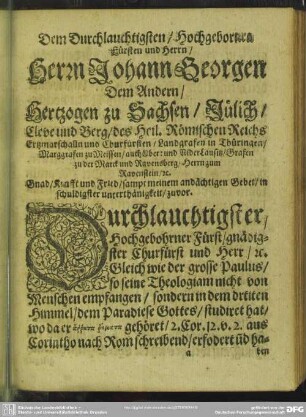 Dem Durchlauchtigsten / Hochgebornen
Fürsten und Herrn /
Herrn Johann Georgen
Dem Andern /
Hertzogen zu Sachsen / Jülich /
Cleve und Berg / des Heil. Römischen Reichs
Ertzmarschalln und Churfürsten / Landgrafen in Thüringen /
Marggrafen zu Meissen / auch Ober und Nider Lausitz / Grafen
zu der Marck und Ravensberg / Herrn zum
Ravenstein / ꝛc.
Gnad / Krafft und Fried / sampt meinem andächtigen Gebet / in
schuldigster unterthänigkeit / zuvor.
Durchlauchtigster /
Hochgebohrner Fürst / gnädig-
ster Churfürst und Herr / ꝛc.
Gleich wie der grosse Paulus /
so seine Theologiam nicht von
Menschen empfangen / sondern in dem dritten
Himmel / dem Paradiese Gottes / studiret hat /
wo da er ἄῤῥητα ῥήματα gehöret / 2. Cor. 12. v. 2. aus
Corintho nach Rom schreibend / erfodert uñ ha-
a
ben